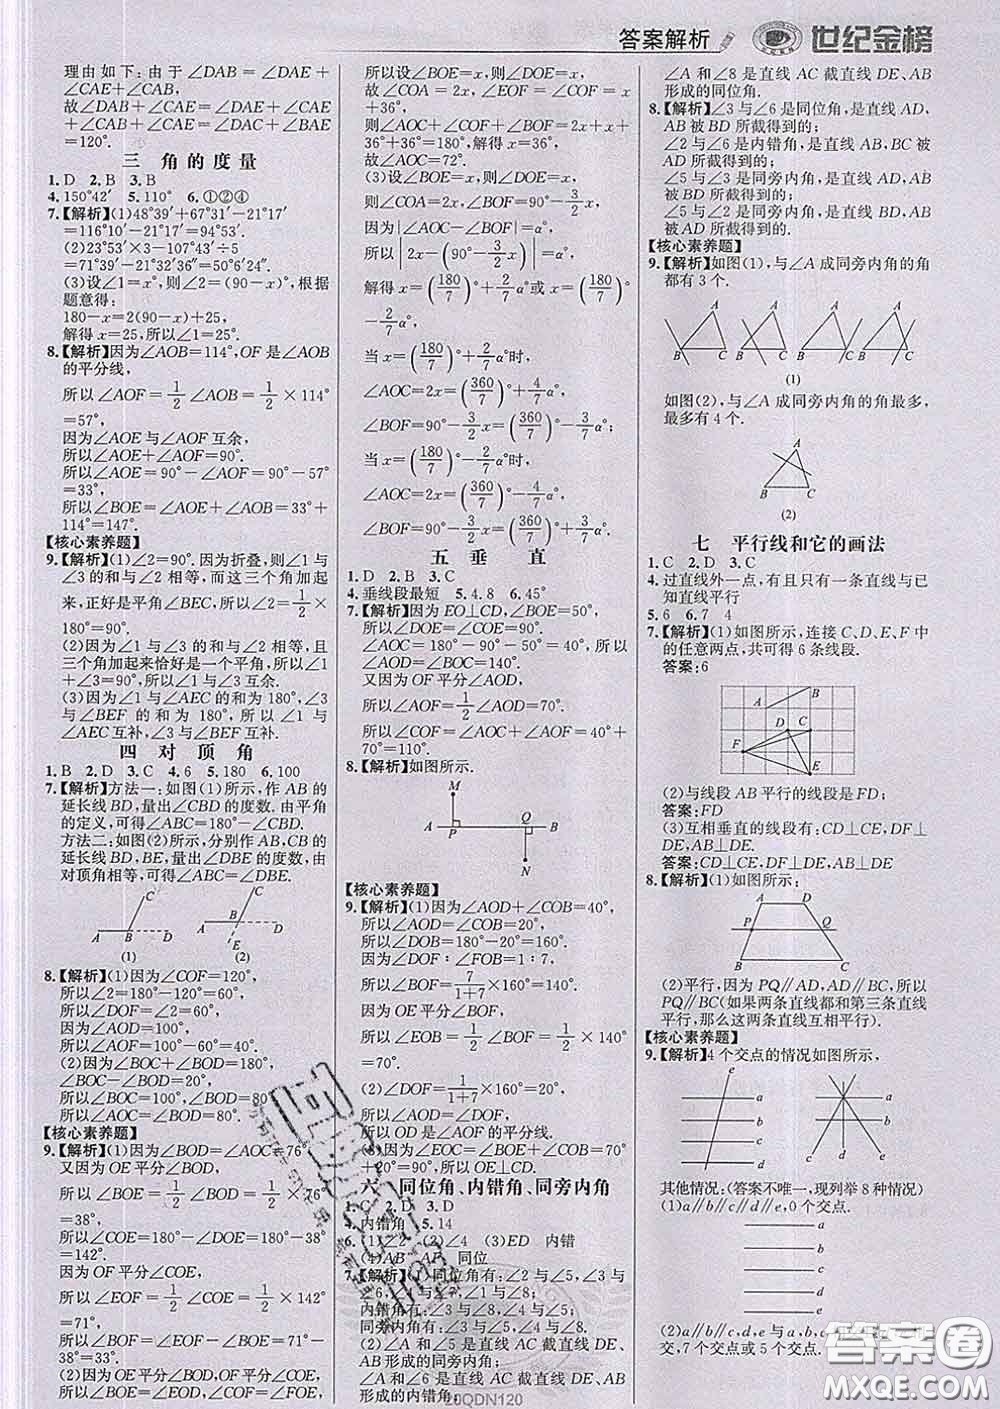 答案解析
世纪金榜
理由如下:由于∠DAB=∠DAE+
∠CAE+∠CAB,
故∠DAB+∠CAE=∠DAE+∠CAE
+∠CAB+∠CAE=∠DAC+∠BAE
=120°.
三 角的度量
1. D 2. B 3. B
4. 150°42′ 5. 110° 6. ①②④
7.【解析】(1)48°39′+67°31′-21°17′
=116°10′-21°17′=94°53′.
(2)23°53′×3-107°43′÷5
=71°39′-21°32′36″=50°6′24″.
(3)设∠1=x°,则∠2=(90-x)°,根据
题意得:
180-x=2(90-x)+25,
解得x=25,所以∠1=25°.
8.【解析】因为∠AOB=114°,OF是∠AOB
的平分线,
所以∠AOF=1/2∠AOB=1/2×114°
=57°,
因为∠AOE与∠AOF互余,
所以∠AOE+∠AOF=90°.
所以∠AOE=90°-∠AOF=90°-57°
=33°,
所以∠BOE=∠AOE+∠AOB=33°+
114°=147°.
【核心素养题】
9.【解析】(1)∠2=90°.因为折叠,则∠1与
∠3的和与∠2相等,而这三个角加起
来,正好是平角∠BEC,所以∠2=1/2×
180°=90°.
(2)因为∠1与∠3的和与∠2相等,且
三个角加起来恰好是一个平角,所以∠1
+∠3=90°,所以∠1与∠3互余.
(3)因为∠1与∠AEC的和为180°,∠3
与∠BEF的和为180°,所以∠1与
∠AEC互补,∠3与∠BEF互补.
四 对顶角
1. B 2. D 3. C 4. 6 5. 180 6. 100
7.【解析】方法一:如图(1)所示,作AB的
延长线BD,量出∠CBD的度数.由平角
的定义,可得∠ABC=180°-∠CBD.
方法二:如图(2)所示,分别作AB,CB的
延长线BD,BE,量出∠DBE的度数,由
对顶角相等,可得∠ABC=∠DBE.
C C
A B D A B D
E
(1) (2)
8.【解析】(1)因为∠COF=120°,
所以∠2=180°-120°=60°,
所以∠DOF=∠2=60°,
因为∠AOD=100°,
所以∠AOF=100°-60°=40°.
(2)因为∠BOC+∠BOD=180°,
∠BOC-∠BOD=20°,
所以∠BOC=100°,∠BOD=80°,
所以∠AOC=∠BOD=80°.
【核心素养题】
9.【解析】(1)因为∠BOD=∠AOC=76°,
又因为OE平分∠BOD,
所以∠BOE=1/2∠BOD=1/2×76°
=38°,
所以∠COE=180°-∠DOE=180°-
38°=142°.
因为OF平分∠COE,
所以∠EOF=1/2∠COE=1/2×142°
=71°,
所以∠BOF=∠EOF-∠BOE=71°-
38°=33°.
(2)因为OE平分∠BOD,OF平分∠COE,
所以∠BOE=∠EOD,∠COF=∠FOE,
所以设∠BOE=x°,则∠DOE=x°,
故∠COA=2x,∠EOF=∠COF=x
+36°,
则∠AOC+∠COF+∠BOF=2x+x+
36°+36°=180°,解得x=36°,
故∠AOC=72°.
(3)设∠BOE=x°,则∠DOE=x°,
∠COA=2x°,∠BOF=90°-3/2x°,
因为|∠AOC-∠BOF|=α°,
所以|2x-(90°-3/2x)|=α°,
解得x=(180/7)°+2/7α°或x=(180/7)°
-2/7α°,
当x=(180/7)°+2/7α°时,
∠AOC=2x=(360/7)°+4/7α°,
∠BOF=90°-3/2x=(360/7)°-3/7α°;
当x=(180/7)°-2/7α°时,
∠AOC=2x=(360/7)°-4/7α°,
∠BOF=90°-3/2x=(360/7)°+3/7α°.
五 垂直
1. D 2. B 3. C
4. 垂线段最短 5. 4.8 6. 45°
7.【解析】因为EO⊥CD,∠BOE=50°,
所以∠DOE=∠COE=90°.
∠AOC=180°-90°-50°=40°,所以
∠AOD=∠BOC=140°.
又因为OF平分∠AOD,
所以∠AOF=1/2∠AOD=70°.
所以∠COF=∠AOC+∠AOF=40°+
70°=110°.
8.【解析】如图所示.
M
A P Q B
N
【核心素养题】
9.【解析】(1)因为∠AOD+∠COB=40°,
所以∠AOD=∠COB=20°,
所以∠DOB=180°-20°=160°.
因为∠DOF:∠FOB=1:7,
所以∠BOF=7/(1+7)×160°=140°.
因为OE平分∠BOF,
所以∠EOB=1/2∠BOF=1/2×140°
=70°.
(2)∠DOF=1/(1+7)×160°=20°,
所以∠AOD=∠DOF,
所以OD是∠AOF的平分线.
(3)因为∠EOC=∠EOB+∠COB=70°
+20°=90°,所以OE⊥CD.
六 同位角、内错角、同旁内角
1. C 2. D 3. D
4. 内错角 5. 14
6. (1)∠2 (2)∠4 (3)ED 内错
(4)AB AF 同位
7.【解析】(1)同位角有:∠2与∠5,∠3与
∠6,∠1与∠4,∠8与∠A,∠5与∠A;
内错角有:∠3与∠5,∠2与∠6;
同旁内角有:∠3与∠2,∠5与∠6.
(2)∠2与∠5是直线AC截直线DE、AB
形成的同旁内角;
∠A和∠6是直线AC截直线DE、AB
形成的内错角;
∠A和∠8是直线AC截直线DE、AB
形成的同位角.
8.【解析】∠3与∠6是同位角,是直线AD、
AB被BD所截得到的;
∠2与∠6是内错角,是直线AD、AB被
BD所截得到的;
∠5与∠3是同旁内角,是直线AB、AD
被BD所截得到的;
∠5与∠2是同旁内角,是直线AB、BD
被AD所截得到的.
【核心素养题】
9.【解析】如图(1),与∠A成同旁内角的角
都有3个.
A A A A
B C B C B C B C
(1)
如图(2),与∠A成同旁内角的角最多,
最多有4个.
A
B C
(2)
七 平行线和它的画法
1. C 2. D 3. C
4. 过直线外一点,有且只有一条直线与已
知直线平行
5. 6 6. 7 4
7.【解析】(1)如图所示,连接C、D、E、F中
的任意两点,共可得6条线段.
答案:6
A B
D C
F
E
(2)与线段AB平行的线段是FD;
答案:FD
(3)互相垂直的线段有:CD⊥CE,DF⊥
DE,AB⊥DE.
答案:CD⊥CE,DF⊥DE,AB⊥DE
8.【解析】(1)如图所示:
A D
P Q
B C
(2)平行,因为PQ∥AD,AD∥BC,所以
PQ∥BC(如果两条直线都和第三条直线
平行,那么这两条直线互相平行).
【核心素养题】
9.【解析】4个交点的情况如图所示,
a
b
c
d
e
a
b
c
d
e
其他情况:(答案不唯一,现列举8种情况)
(1)a∥b∥c∥d∥e,0个交点.
a
b
c
d
e
(2)a∥b∥c∥d
交,7个交点或5个交点.
20QDN120
答案圈
MXQE.COM